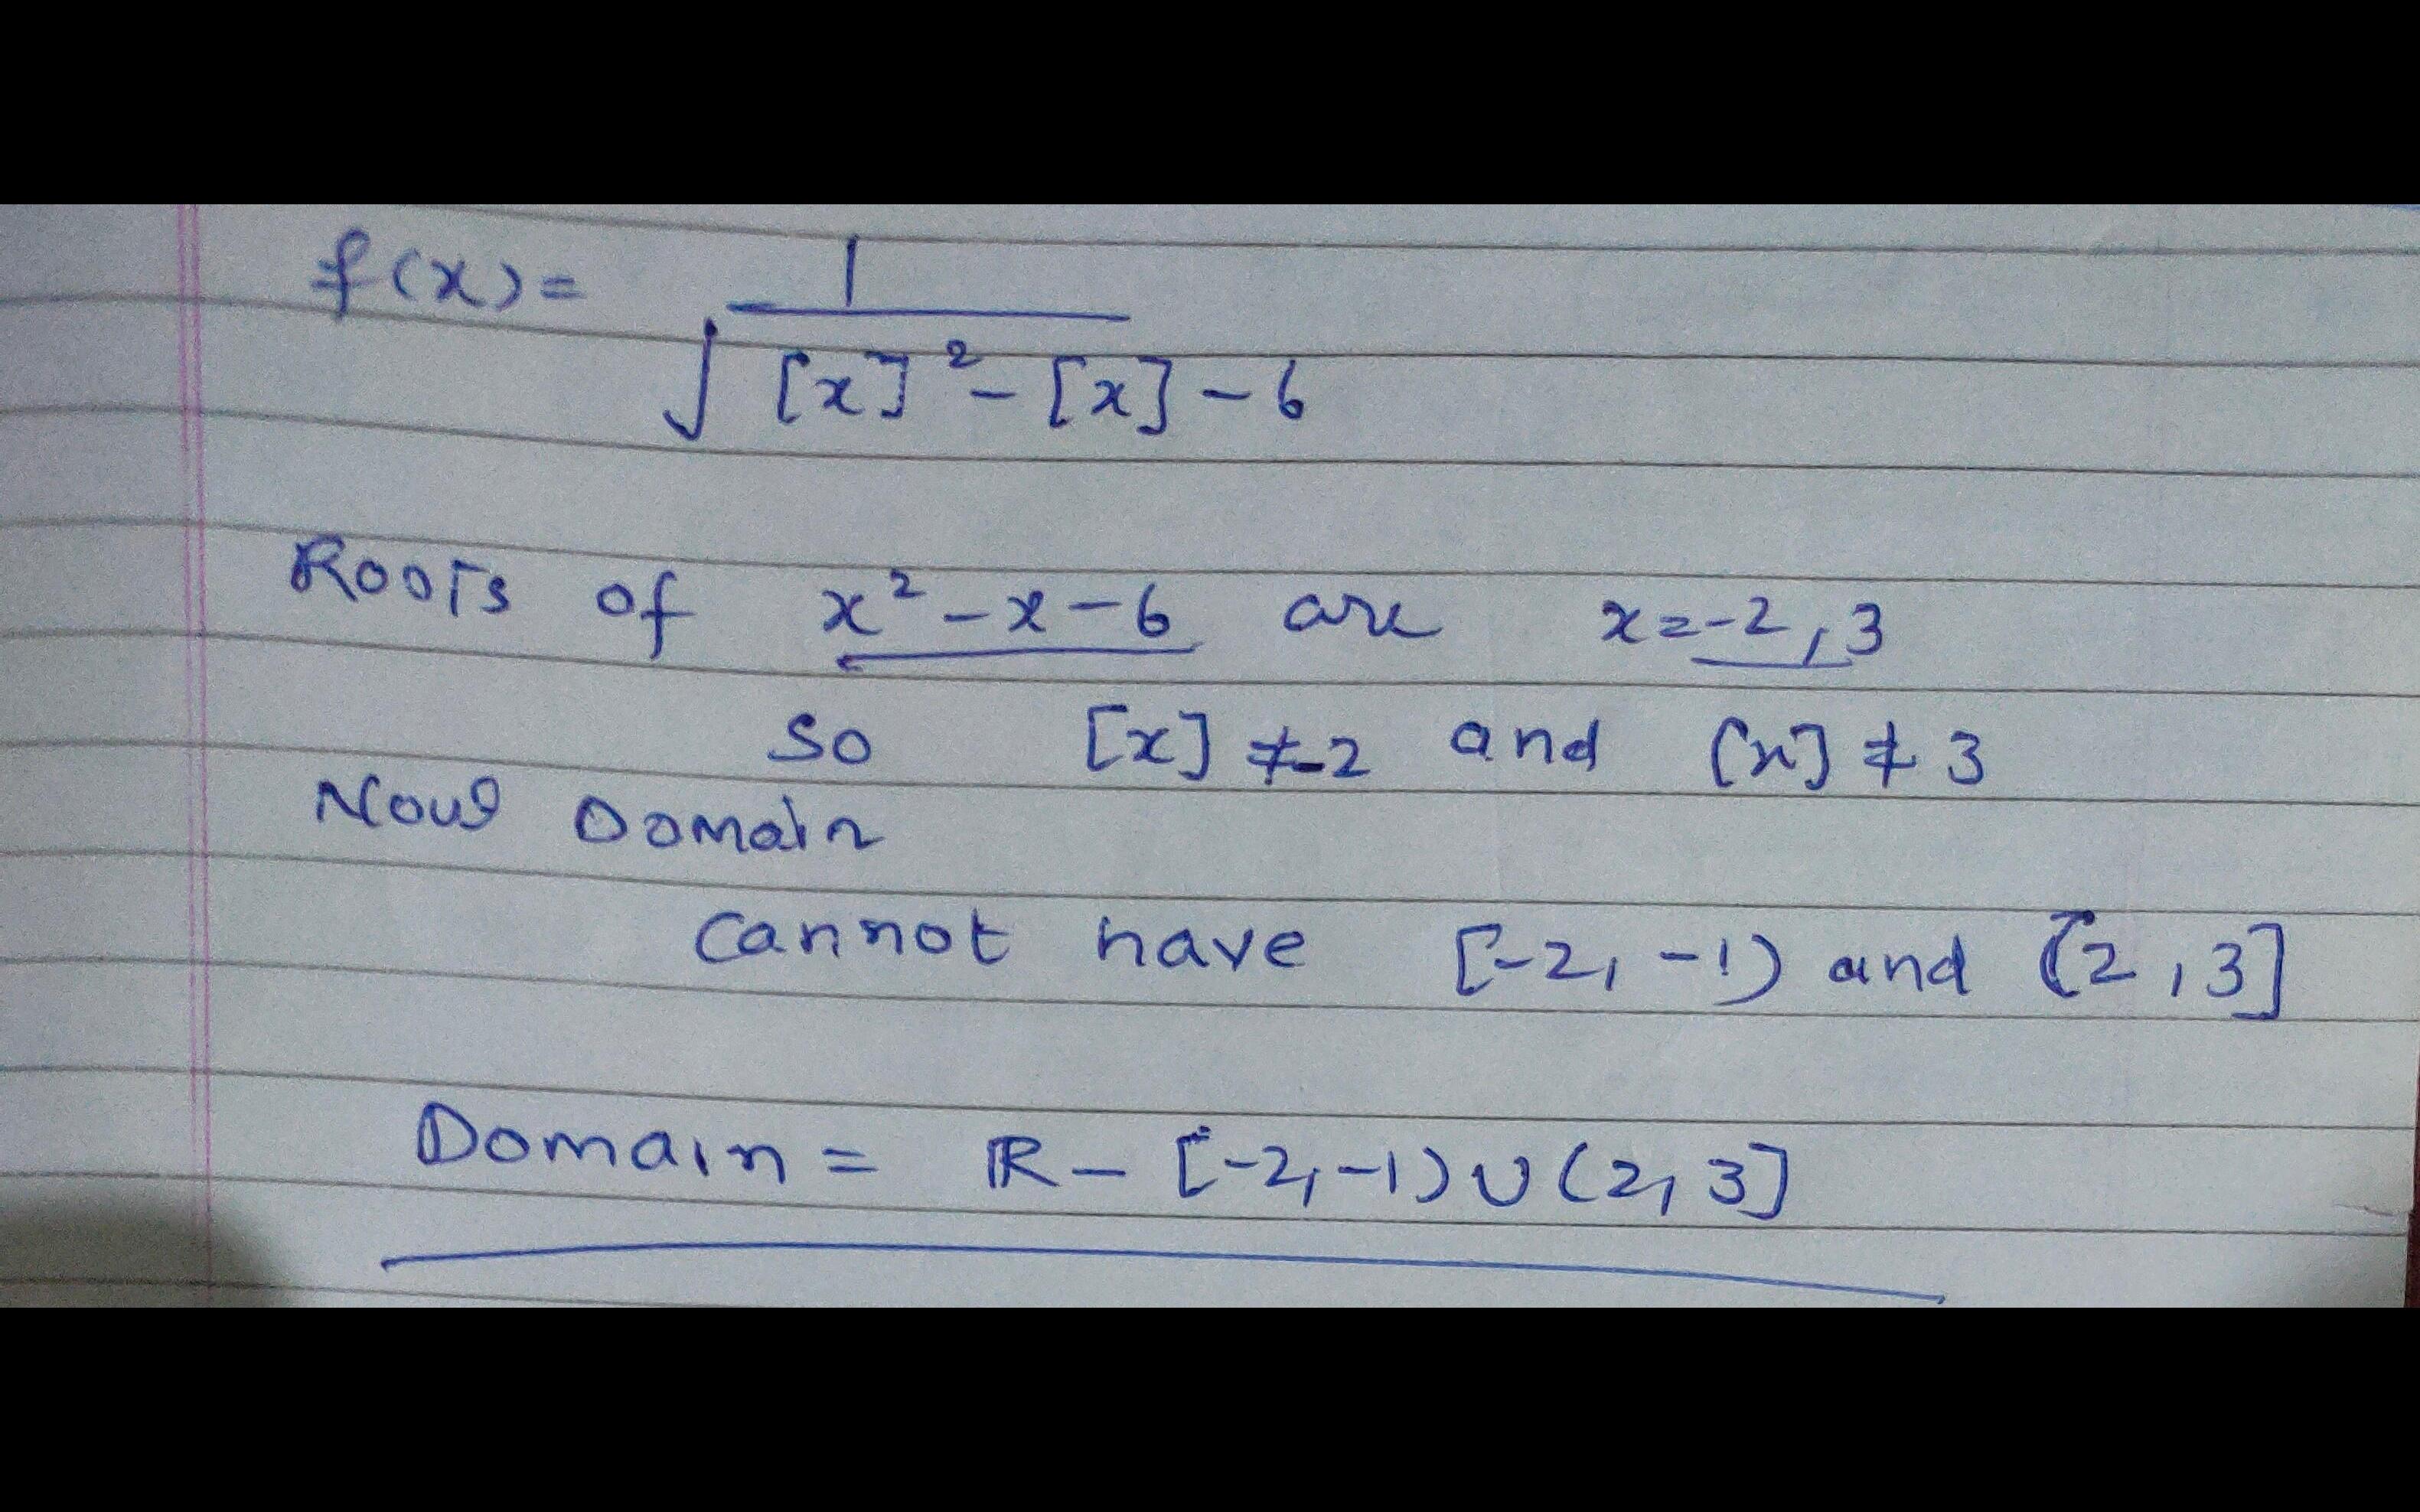 f(x) = 1
√[x]² - [x] - 6
Roots of x² - x - 6 are x = -2, 3
so [x] ≠ -2 and [x] ≠ 3
Now Domain
cannot have [-2, -1) and (2, 3]
Domain = ℝ - [-2, -1) ∪ (2, 3]